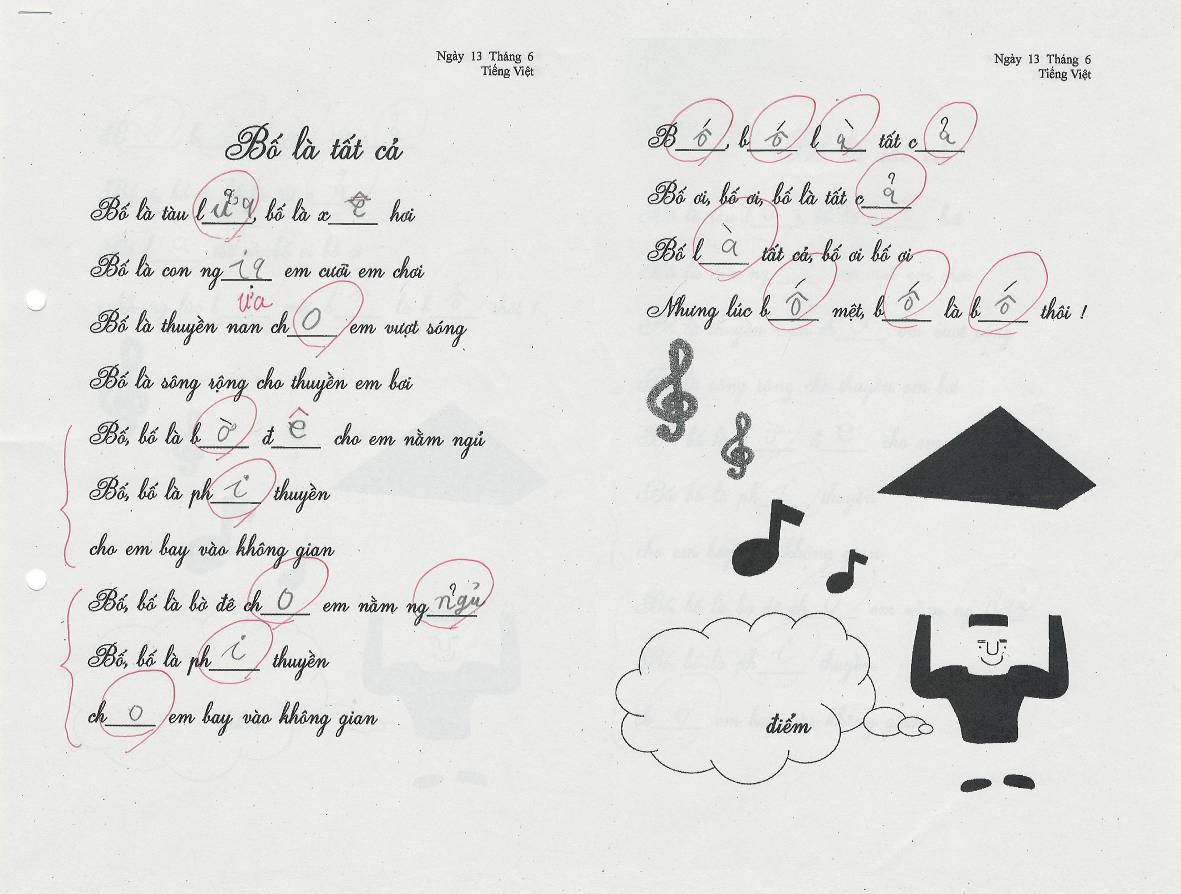 Ngày 13 Tháng 6
Tiếng Việt
Bố là tất cả
Bố là tàu lửa, bố là xê hơi
Bố là con ngia em cưỡi em chơi
ựa
Bố là thuyền nan cho em vượt sóng
Bố là sông rộng cho thuyền em bơi
Bố, bố là bờ đê cho em nằm ngủ
Bố, bố là phi thuyền
cho em bay vào không gian
Bố, bố là bờ đê cho em nằm ngủ
Bố, bố là phi thuyền
cho em bay vào không gian
Ngày 13 Tháng 6
Tiếng Việt
Bố, bố là tất cả
Bố ơi, bố ơi, bố là tất cả
Bố là tất cả, bố ơi bố ơi
Nhưng lúc bố mệt, bố là bố thôi !
điểm